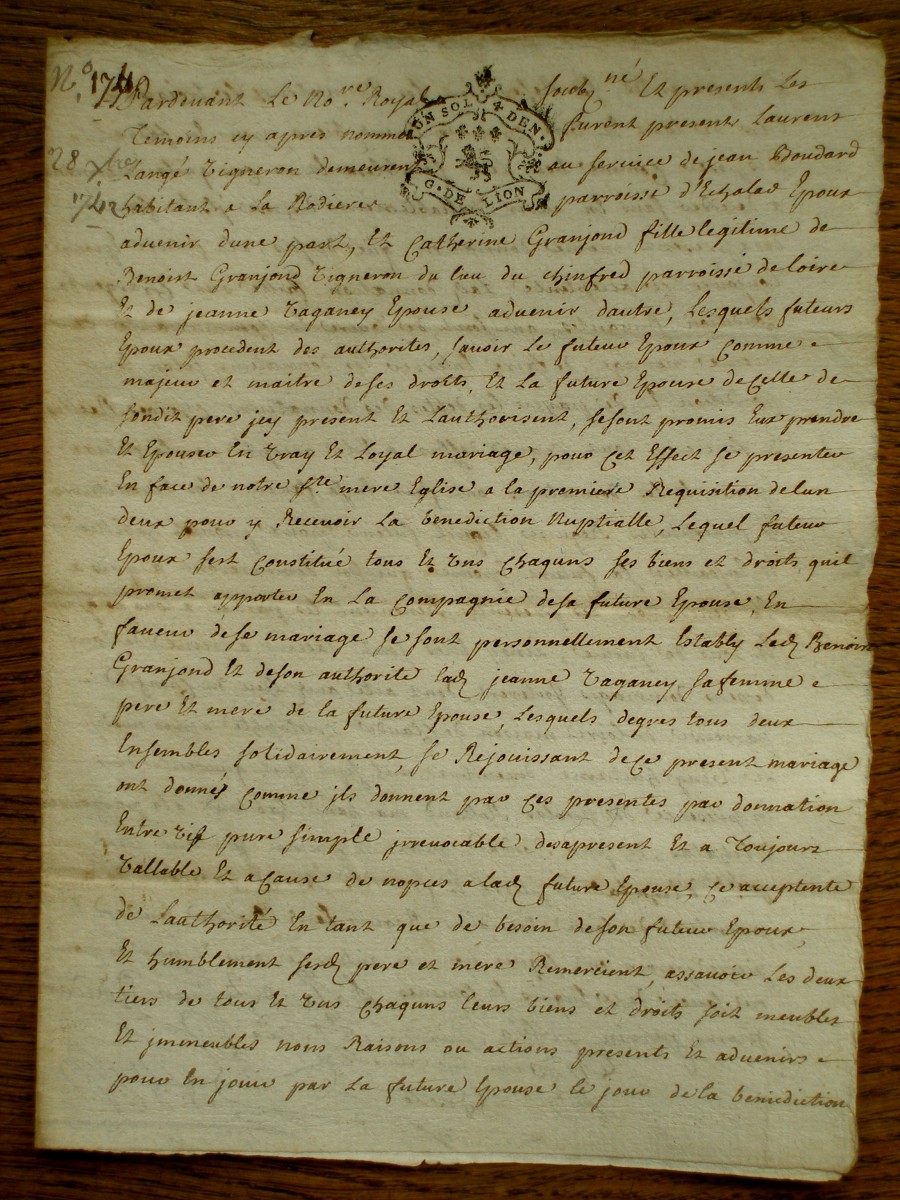 N.° 174
28 xbre
1742
UN SOL 4 DEN.
G. DE LION
Pardevant Le No.re Royal soubz.né Et presents Les
Temoins cy apres nommes furent presents Laurens
Langé vigneron demeurent au service de jean Boudard
habitant a La Rodiere parroisse d'Echalas Epoux
advenir dune part, Et Catherine Granjond fille legitime de
Benoist Granjond vigneron du lieu du chinfred parroisse de loire
Et de jeanne vaganey Epouse advenir dautre, Lesquels futeurs
Epoux procedent des authorites, savoir Le futeur Epoux comme
majeur et maitre deses droits, Et La future Epouse de celle de
sondit pere jcy present Et Lauthorisent, sesont promis Eux prendre
Et Epouser En vray Et Loyal mariage, pour cet Effect se presenter
En face de notre ste mere Eglise a la premiere Requisition delun
deux pour y Recevoir La benediction Nuptialle, Lequel futeur
Epoux sest constitué tous Et uns chaquns ses biens et droits quil
promet apporter En La compagnie desa future Epouse, En
faveur dese mariage se sont personnellement Establys Led Benoist
Granjond Et deson authorité lad jeanne vaganey sa femme
pere Et mere de la future Epouse, Lesquels degres tous deux
Ensembles solidairement, se Rejouissant dece present mariage
ont donnés comme jls donnent par ces presentes par donnation
Entre vif pure simple jrrevocable desapresent Et a Toujours
vallable Et acause de nopces a lad future Epouse, ce acceptente
de Lauthorité En tant que de besoin deson futeur Epoux,
Et humblement sesd pere et mere Remercient, assavoir Les deux
tiers de tous Et uns chaquns leurs biens et droits soit meubles
Et jmmeubles noms Raisons ou actions presents Et advenirs
pour En jouir par La future Epouse le jour de la benediction